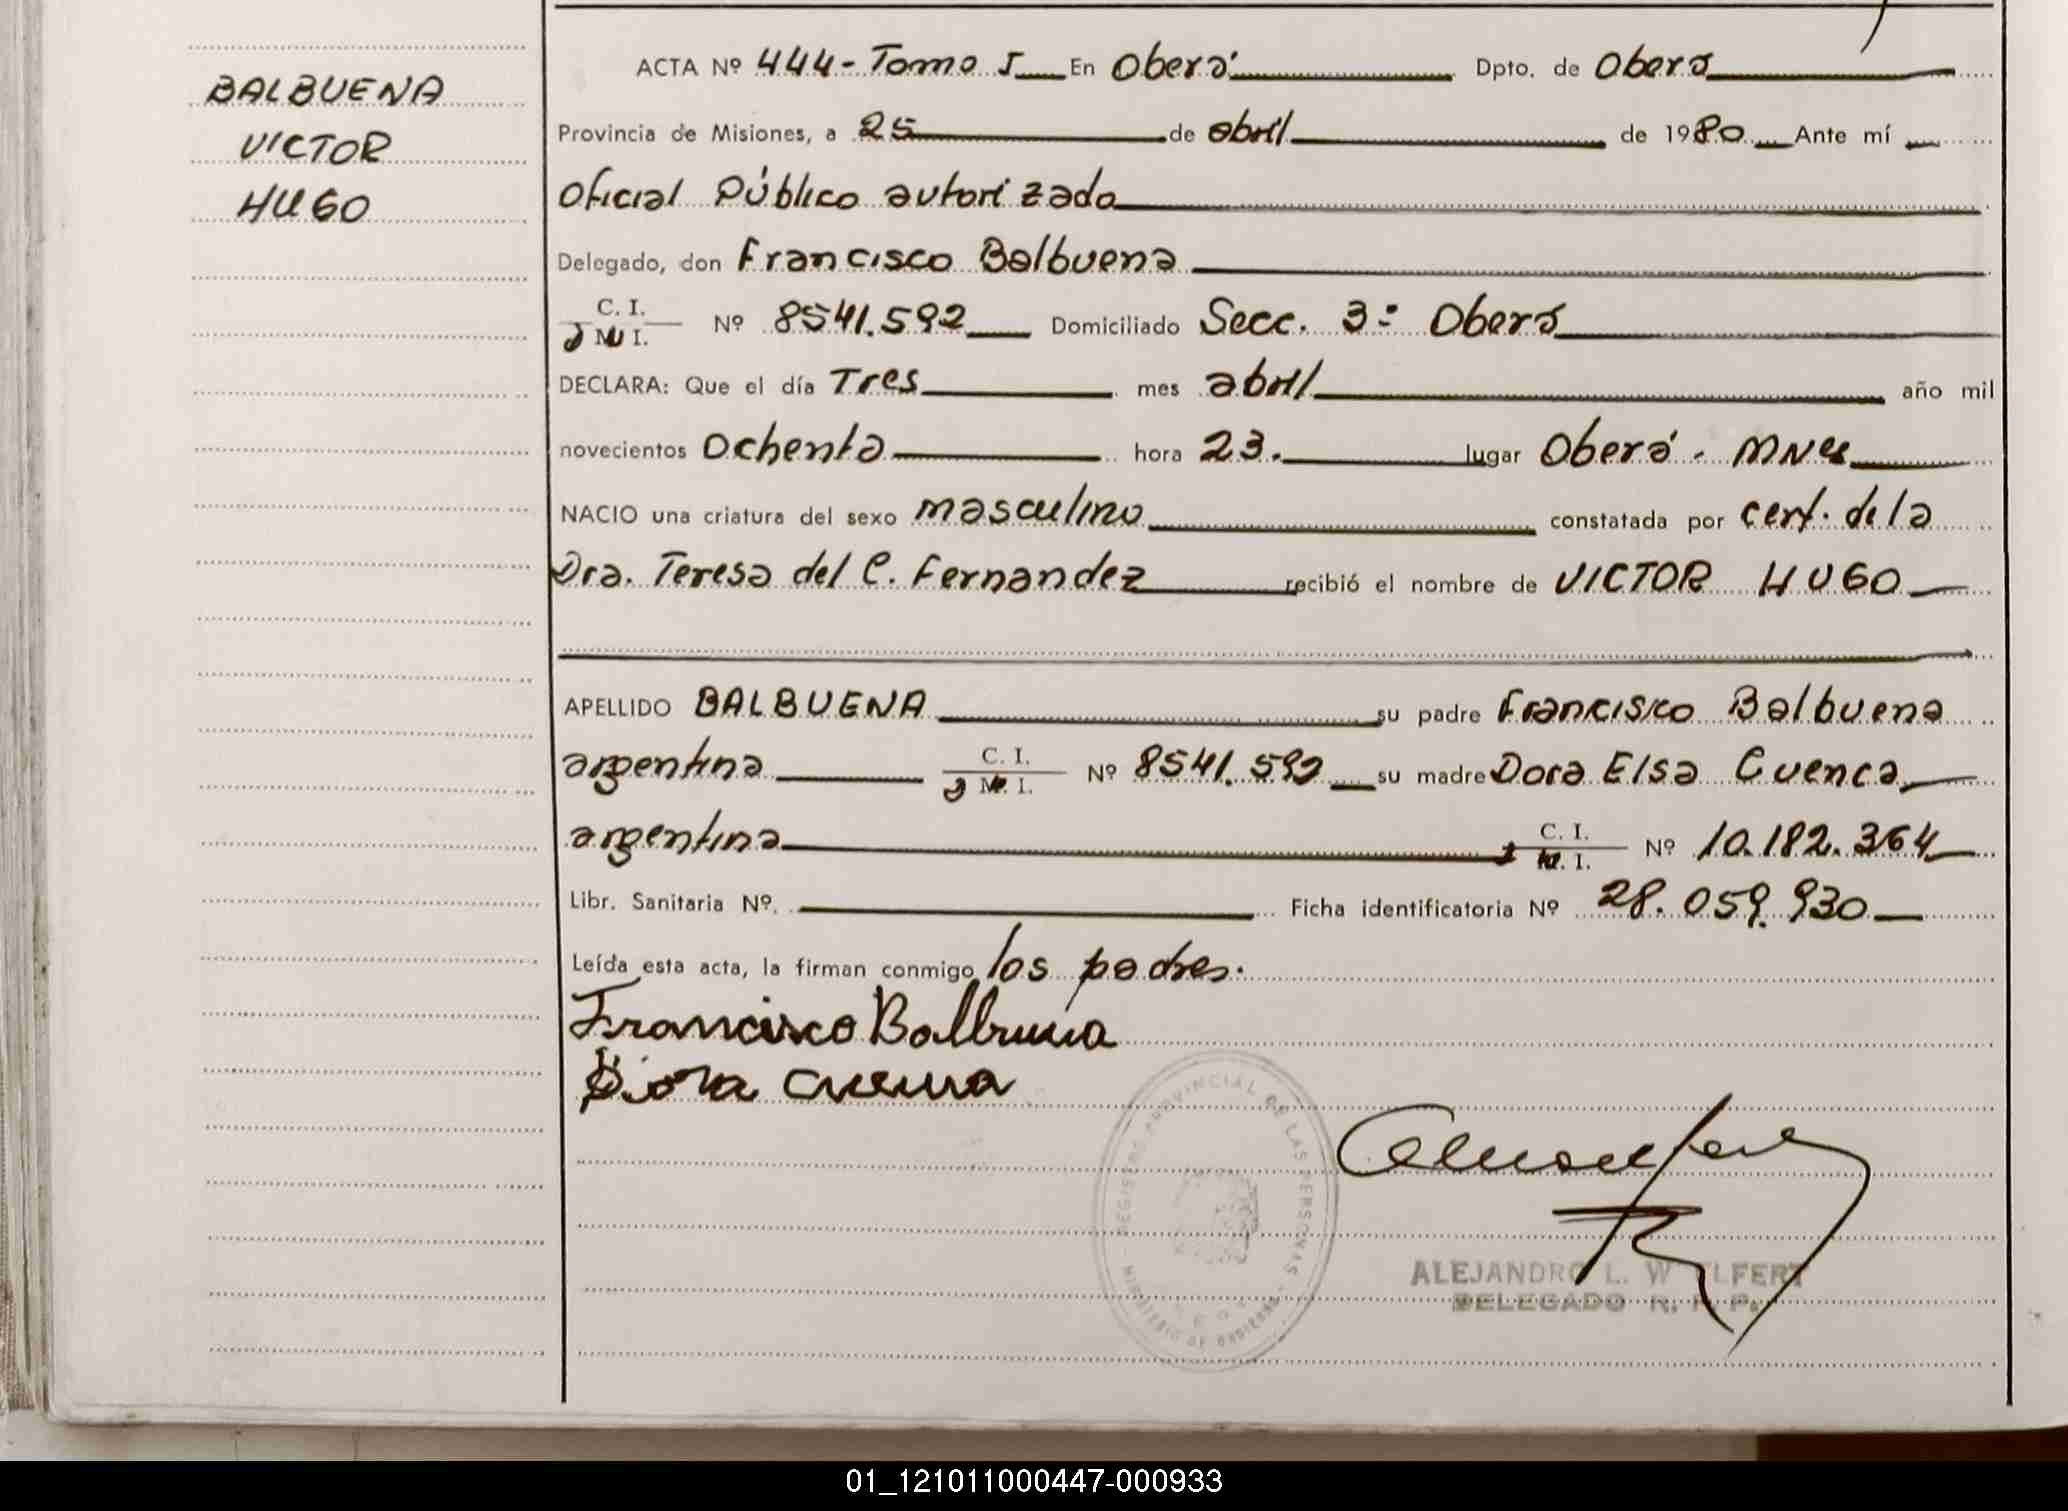 BALBUENA
VICTOR
HUGO
ACTA Nº 444-Tomo I En Oberá Dpto. de Oberá
Provincia de Misiones, a 25 de abril de 1980 Ante mí
Oficial Público autorizado
Delegado, don Francisco Balbuena
C. I.
M. I. Nº 8541.592 Domiciliado Secc. 3º Oberá
DECLARA: Que el día Tres mes abril año mil
novecientos Ochenta hora 23. lugar Oberá - MNes
NACIO una criatura del sexo masculino constatada por cert. de la
Dra. Teresa del C. Fernandez recibió el nombre de VICTOR HUGO
APELLIDO BALBUENA su padre Francisco Balbuena
argentina C. I. M. I. Nº 8541.592 su madre Dora Elsa Cuenca
argentina C. I. M. I. Nº 10.182.364
Libr. Sanitaria Nº. Ficha identificatoria Nº 28.059.930
Leída esta acta, la firman conmigo los padres.
Francisco Balbuena
Dora Cuenca
REGISTRO PROVINCIAL DE LAS PERSONAS
MINISTERIO DE GOBIERNO
ALEJANDRO L.
DELEGADO R. P. P.
01_121011000447-000933